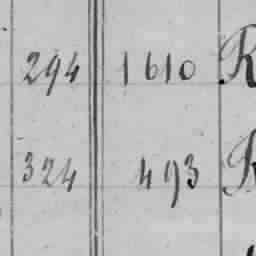 294 1610 R
324 493